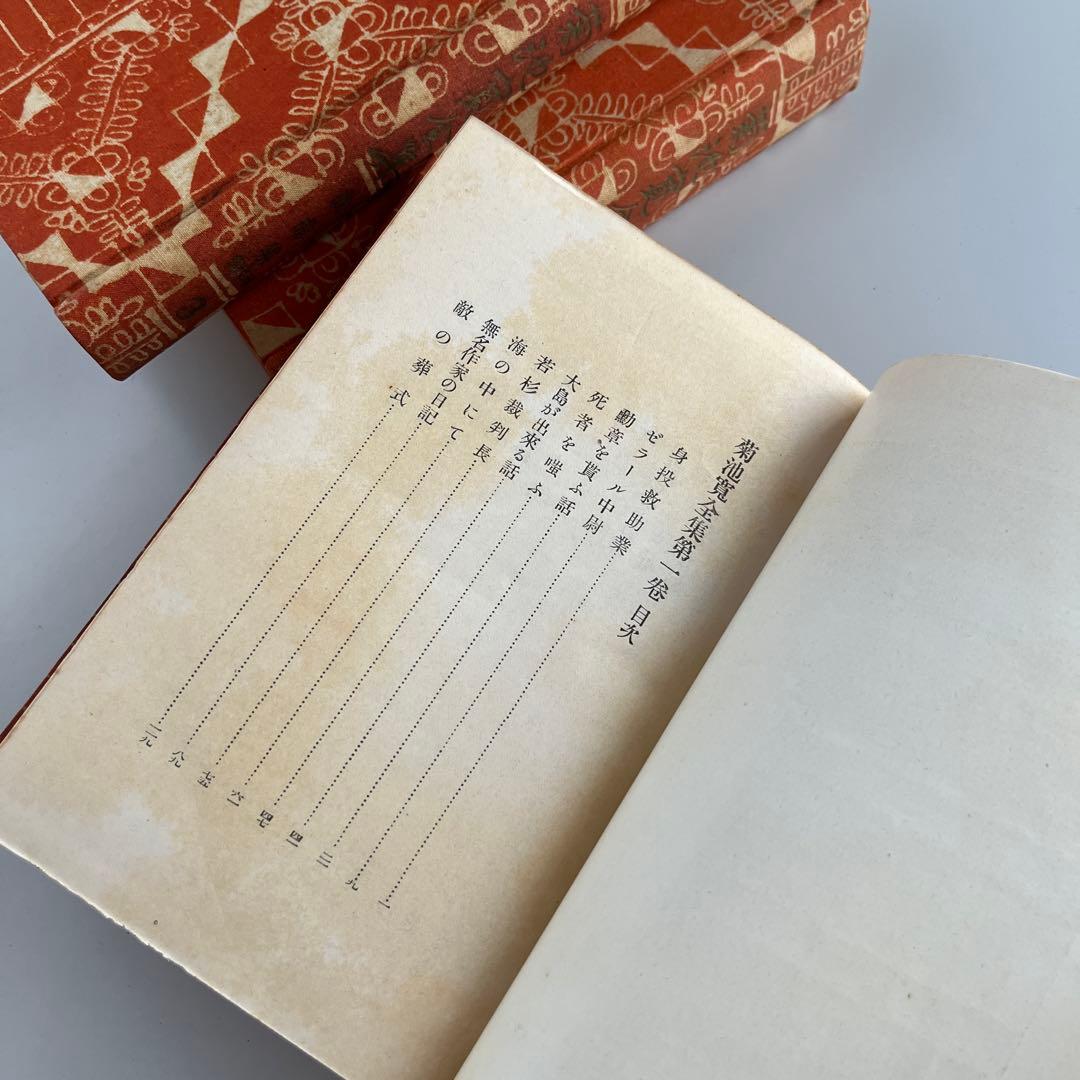 菊池寬全集第一卷 目次
身投救助業……一
ゼラール中尉……九
勳章を貰ふ話……二一
死者を嗤ふ……四一
大島が出來る話……四七
若杉裁判長……六一
海の中にて……七五
無名作家の日記……八九
敵の葬式……一一九